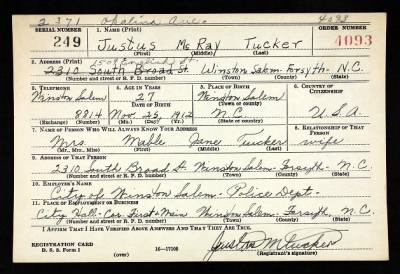 2371 Ave. 4093
SERIAL NUMBER 1. Name (Print) ORDER NUMBER
249 Justus Mc Ray Tucker 4093
(First) (Middle) (Last)
2. Address (Print) 1508 English St.
2310 South Broad St. Winston Salem - Forsyth - N.C.
(Number and street or R. F. D. number) (Town) (County) (State)
3. Telephone 4. Age in Years 5. Place of Birth 6. Country of Citizenship
Winston Salem 27 Winston Salem
Date of Birth (Town or county)
8814 Nov. 25, 1912 N.C. U.S.A.
(Exchange) (Number) (Mo.) (Day) (Yr.) (State or country)
7. Name of Person Who Will Always Know Your Address 8. Relationship of That Person
Mrs. Mable Jane Tucker wife
(Mr., Mrs., Miss) (First) (Middle) (Last)
9. Address of That Person
2310 South Broad St. Winston Salem - Forsyth - N.C.
(Number and street or R. F. D. number) (Town) (County) (State)
10. Employer's Name
City of Winston Salem - Police Dept.
11. Place of Employment or Business
City Hall - Cor. First - Main Winston Salem - Forsyth, N.C.
(Number and street or R. F. D. number) (Town) (County) (State)
I Affirm That I Have Verified Above Answers and That They Are True.
REGISTRATION CARD
D. S. S. Form 1 (over) 16—17105
Justus M Tucker
(Registrant's signature)